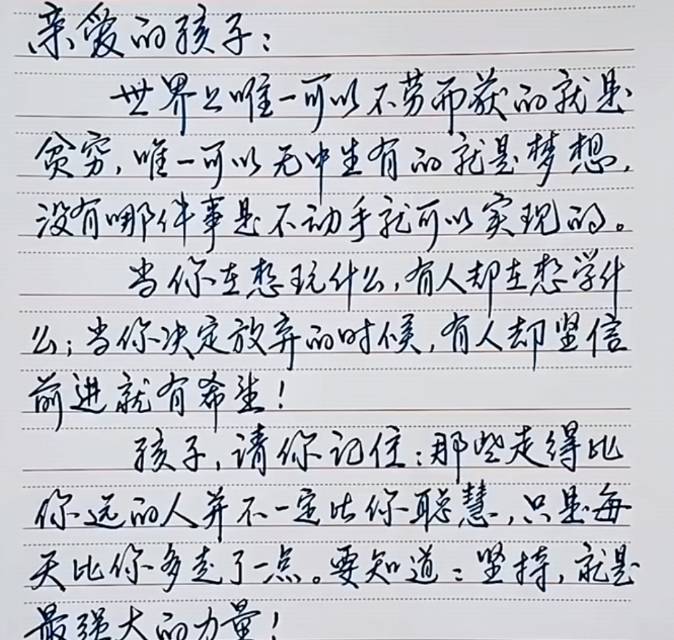 亲爱的孩子：
世界上唯一可以不劳而获的就是
贫穷，唯一可以无中生有的就是梦想，
没有哪件事是不动手就可以实现的。
当你在想玩什么，有人却在想学什
么；当你决定放弃的时候，有人却坚信
前进就有希望！
孩子，请你记住：那些走得比
你远的人并不一定比你聪慧，只是每
天比你多走了一点。要知道：坚持，就是
最强大的力量！